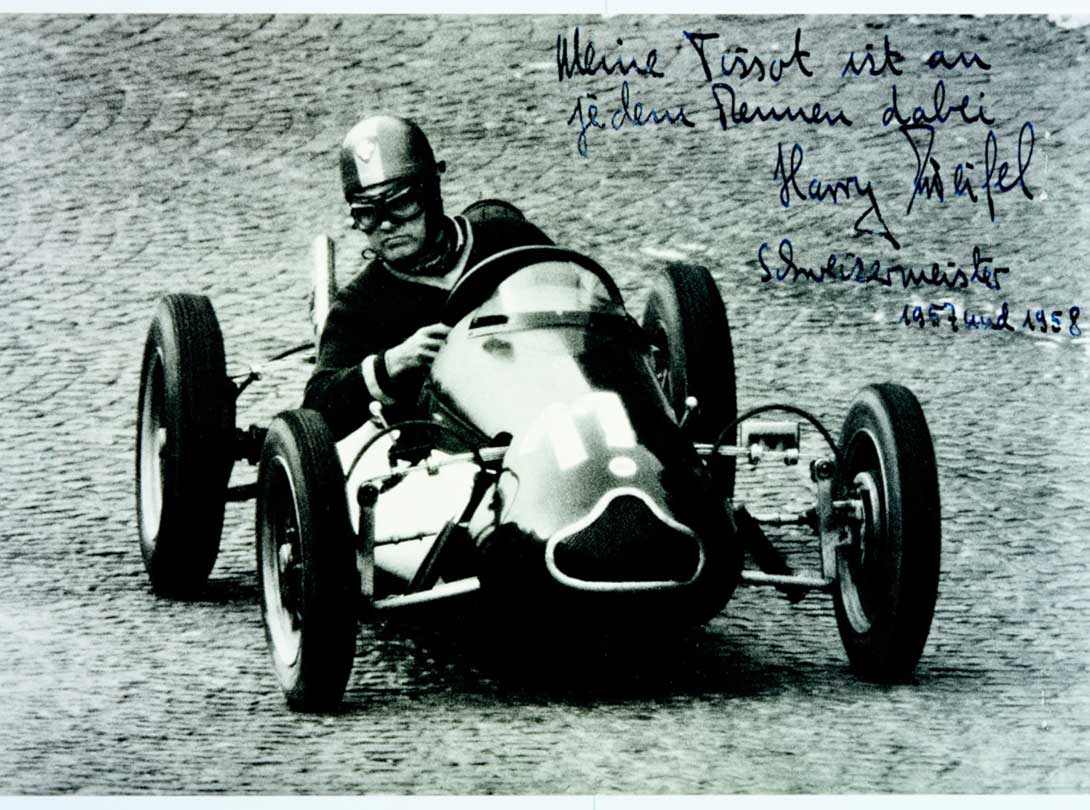 Meine Tissot ist an
jedem Rennen dabei
Harry Zweifel
Schweizermeister
1957 und 1958